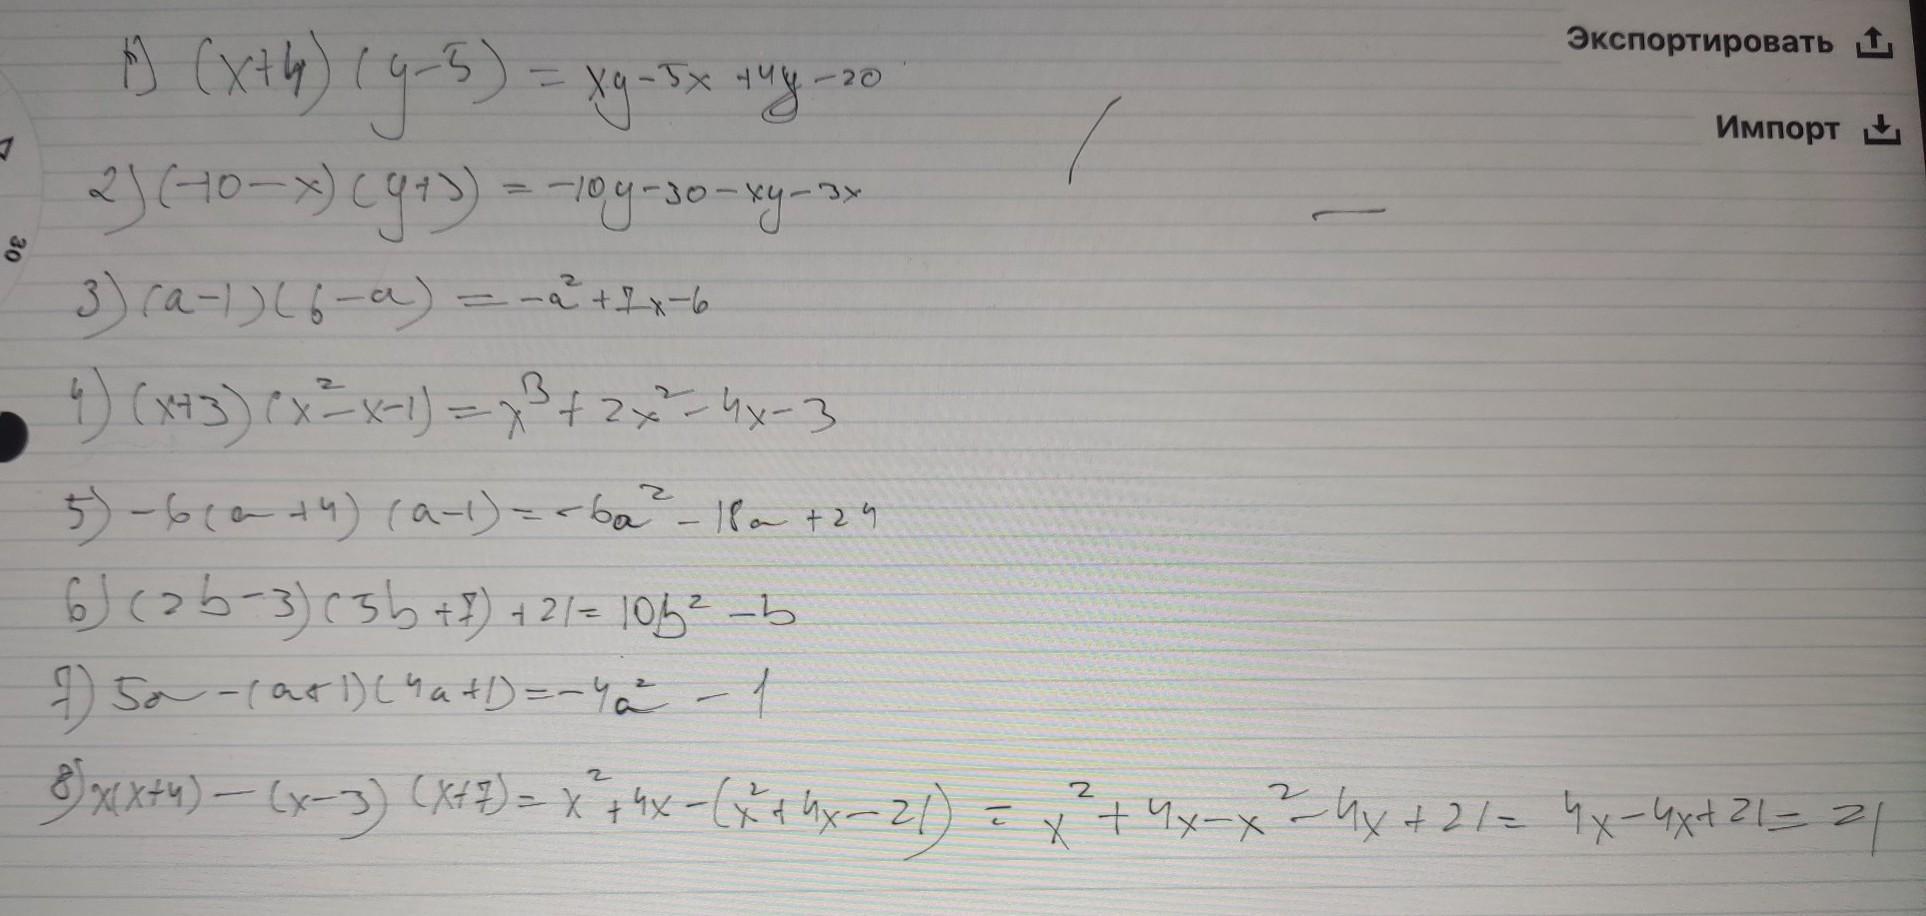 Экспортировать
Импорт
1) (x+4) (y-5) = xy-5x +4y-20
2) (-10-x) (y+3) = -10y-30-xy-3x
30
3) (a-1) (6-a) = -a²+7x-6
4) (x+3) (x²-x-1) = x³+2x²-4x-3
5) -6(a+4) (a-1) = -6a²-18a+24
6) (2b-3) (5b+7) +21= 10b²-b
7) 5a-(a+1)(4a+1)=-4a²-1
8) x(x+4) - (x-3) (x+7) = x²+4x-(x²+4x-21) = x²+4x-x²-4x+21= 4x-4x+21=21